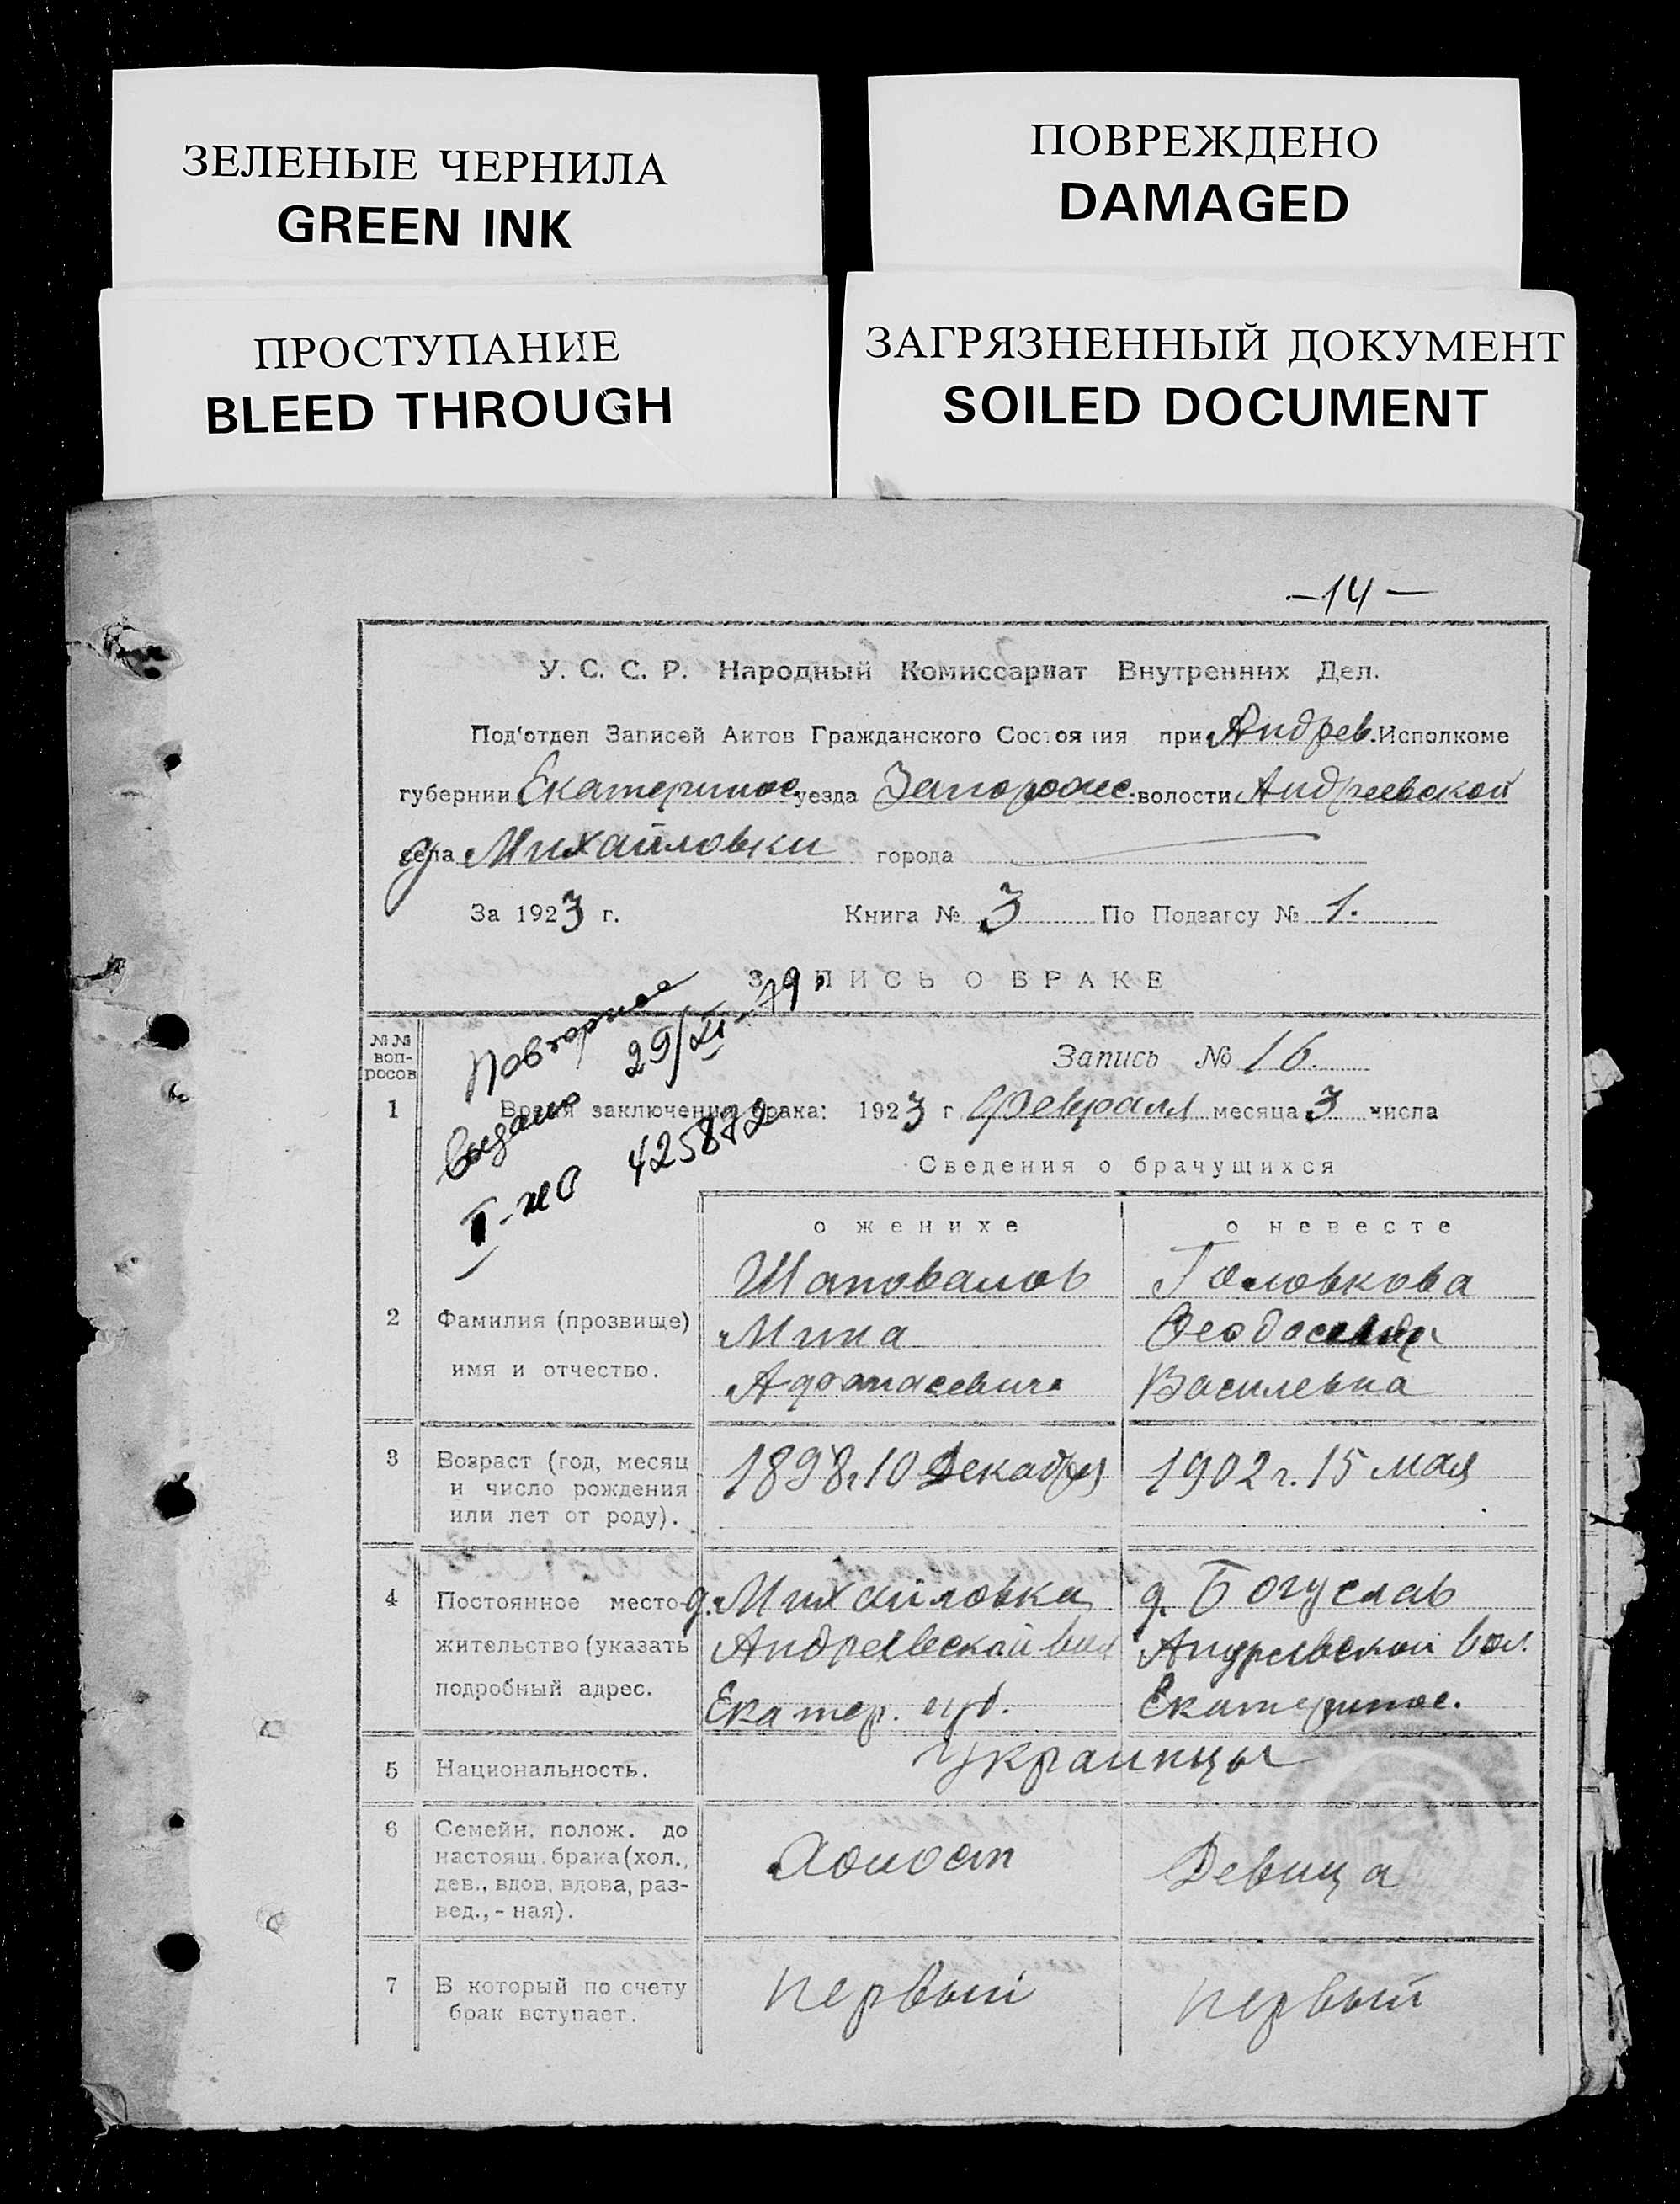 ЗЕЛЕНЫЕ ЧЕРНИЛА
GREEN INK
ПОВРЕЖДЕНО
DAMAGED
ПРОСТУПАНИЕ
BLEED THROUGH
ЗАГРЯЗНЕННЫЙ ДОКУМЕНТ
SOILED DOCUMENT
–14–
У. С. С. Р. Народный Комиссариат Внутренних Дел.
Под'отдел Записей Актов Гражданского Состояния при Андрев. Исполкоме
губернии Екатеринос уезда Запорожс. волости Андреевской
села д Михайловки города
За 1923 г. Книга № 3 По Подзагсу № 1.
ЗАПИСЬ О БРАКЕ
Повторное 29/XI-79
выдано
I-ЖС 425872
№№ воп-
росов
Запись № 16.
1 Время заключения брака: 1923 г Февраля месяца 3 числа
Сведения о брачущихся
о женихе о невесте
Шаповалов Головкова
2 Фамилия (прозвище) Мина
имя и отчество. Афонасевич Василевна
3 Возраст (год, месяц 1898г 10 Декабря 1902 г. 15 мая
и число рождения
или лет от роду).
4 Постоянное место- д. Михайловка д. Богуслав
жительство (указать Андреевской вол Андреевской вол.
подробный адрес. Екатер. губ. Екатеринос.
5 Национальность. Украинцы
6 Семейн. полож. до
настоящ. брака (хол., Холост Девица
дев., вдов, вдова, раз-
вед., - ная).
7 В который по счету первый первый
брак вступает.